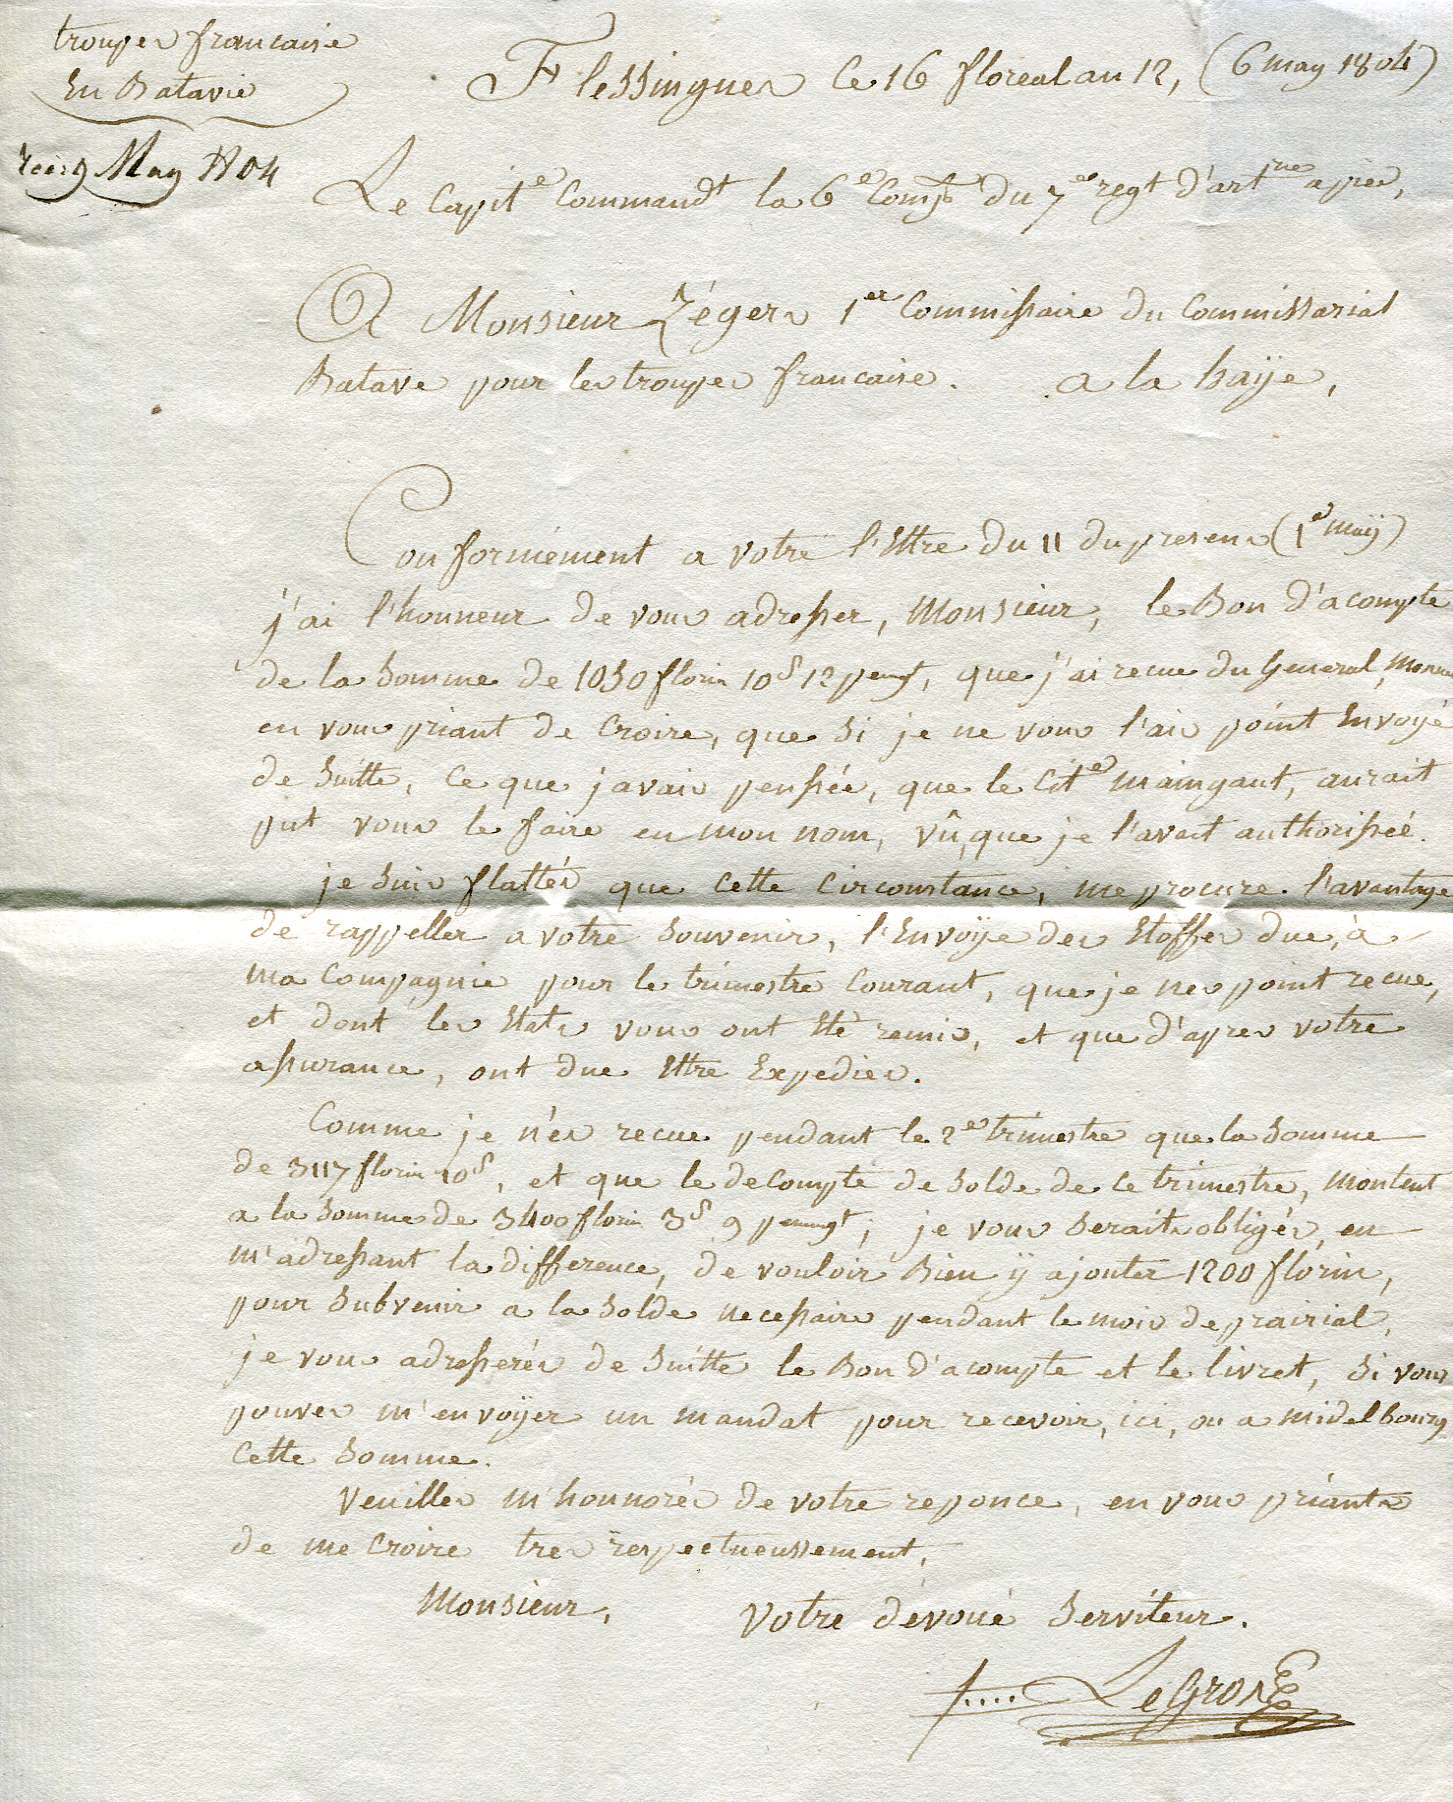 troupes francaise
En Batavie
Flessingues Ce 16 floreal an 12, (6 may 1804)
9 May 1804
Le Capit.e Command.t la 6.e Comp.e du 7.e reg.t d'art.rie a pied,
A Monsieur Zégers 1.er Commissaire du Commissariat
Batave pour les troupes francaise. a la haÿe,
Conformément a votre l'Ettre du 11 du present (1.er maÿ)
j'ai l'honneur de vous adresser, Monsieur, le Bon d'acompte
de la somme de 1030 florin 10 s 12 penn.gt, que j'ai recue du General, Monnet
en vous priant de Croire, que si je ne vous l'ais point Envoyé
de Suitte, Ce que j'avais pensée, que le Cit.e maingaut, aurait
put vous le faire en mon nom, vû, que je l'avait authorissée.
je suis flattés que cette Circonstance, me procure l'avantage
de rappeller a votre souvenir, l'Envoÿe des Etoffes due, à
ma Compagnie pour le trimestre Courant, que je nes point recue,
et dont les Etats vous ont Eté remis, et que d'apres votre
assurance, ont due Ettre Expedies.
Comme je n'és recue pendant le 2.e trimestre que la somme
de 3117 florin 10 s, et que le decompte de solde de Ce trimestre, montent
a la somme de 3400 florin 3 s 9 penning.t; je vous serait obligés, en
m'adressant la difference, de vouloir Bien ÿ ajouter 1200 florin,
pour subvenir a la solde necessaire pendant le mois de prairial,
je vous adresserés de suitte le Bon d'acompte et le livret, si vous
pouves m'envoÿer un mandat pour recevoir, ici, ou a midelbourg
Cette somme.
Veuilles m'honnorés de votre reponce, en vous priants
de me Croire tres respectueussement,
Monsieur, Votre dévoué Serviteur.
LeGros